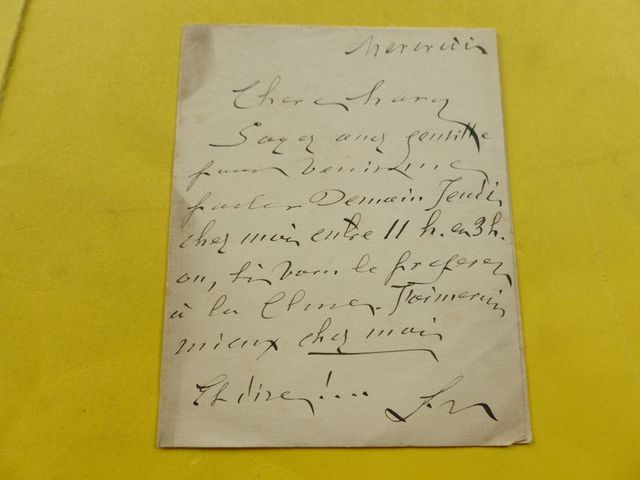 Mercredi
Chere Mary
Soyez assez gentille
pour venir me
parler Demain Jeudi
chez moi entre 11 h. en 3 h.
ou, si vous le préférez
à la J'aimerais
mieux chez moi
Et dire !...